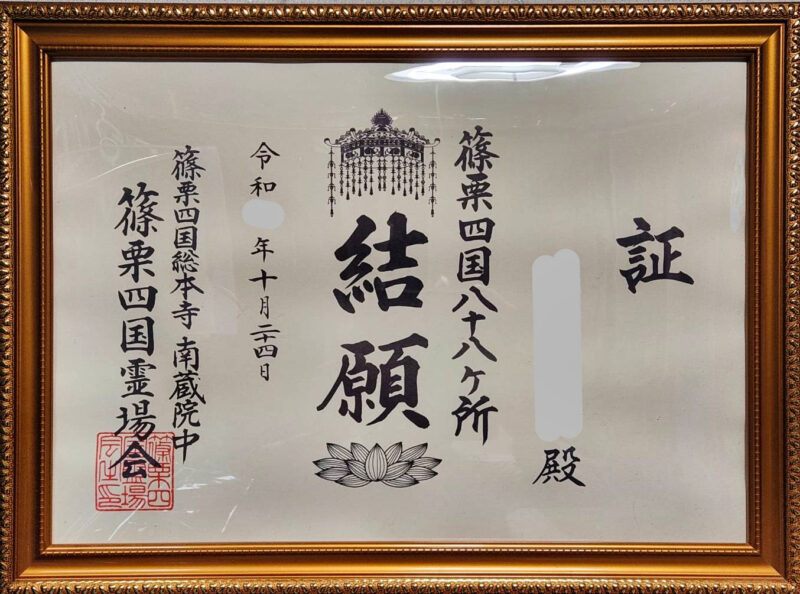 証
殿
篠栗四国八十八ヶ所
結願
令和 年十月二十四日
篠栗四国総本寺 南蔵院中
篠栗四国霊場会